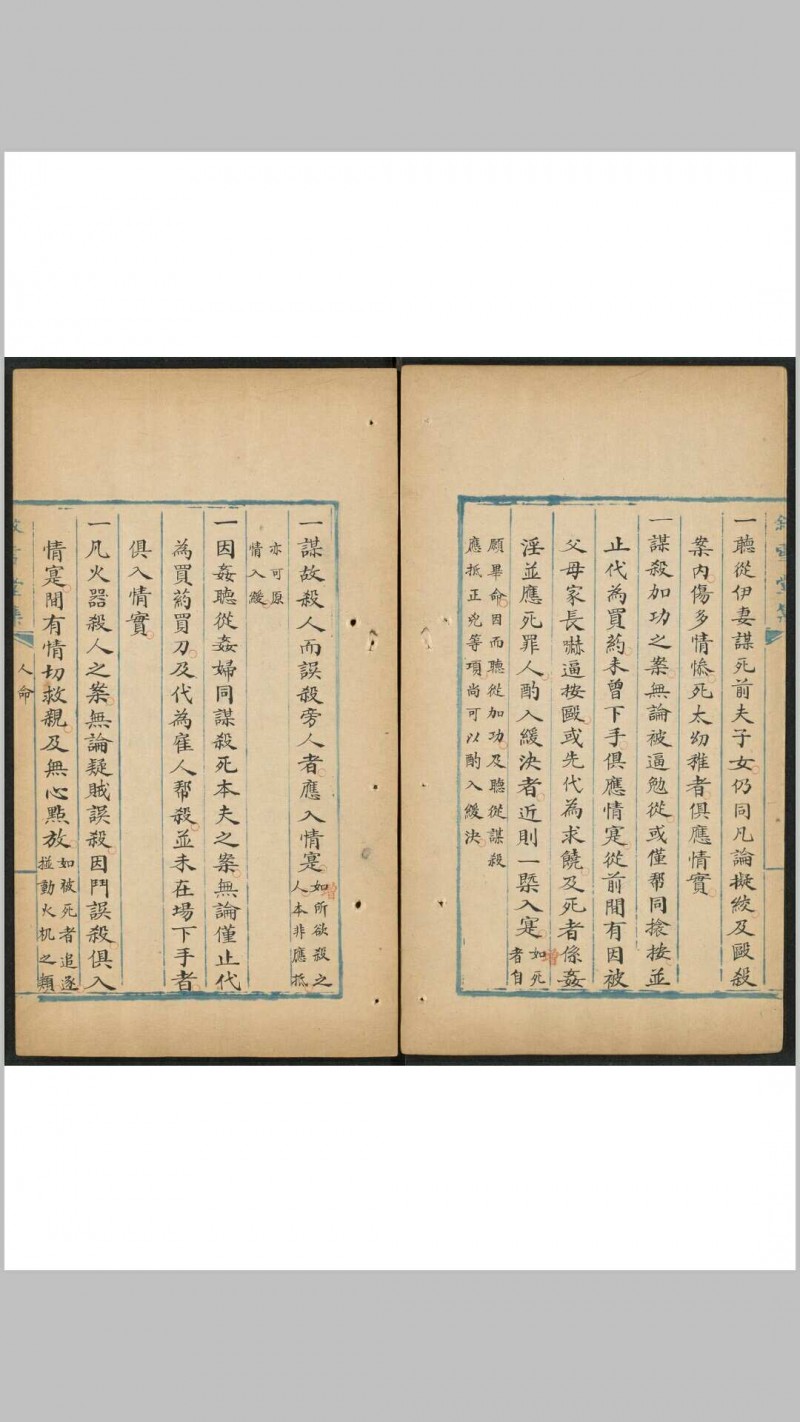 一聽從伊妻謀死前夫子女仍同凡論擬絞及毆殺
案內傷多情慘死太幼稚者俱應情實
一謀殺加功之案無論被逼勉從或僅幫同搶按並
止代為買药未曾下手俱應情寔從前間有因被
父母家長嚇逼按毆或先代為求饒及死者係姦
淫並應死罪人酌入緩決者近則一槩入寔如死者自
願畢命因而聽從加功及聽從謀殺
應抵正兇等項尚可以酌入緩決
增
一謀故殺人而誤殺旁人者應入情寔如所欲殺之人本非應抵
亦可原
情入緩
增
一因姦聽從姦婦同謀殺死本夫之案無論僅止代
為買药買刀及代為雇人帮殺並未在場下手者
俱入情實
一凡火器殺人之案無論疑賊誤殺因鬥誤殺俱入
情寔間有情切救親及無心點放如被死者追逐搓動火机之類
人命